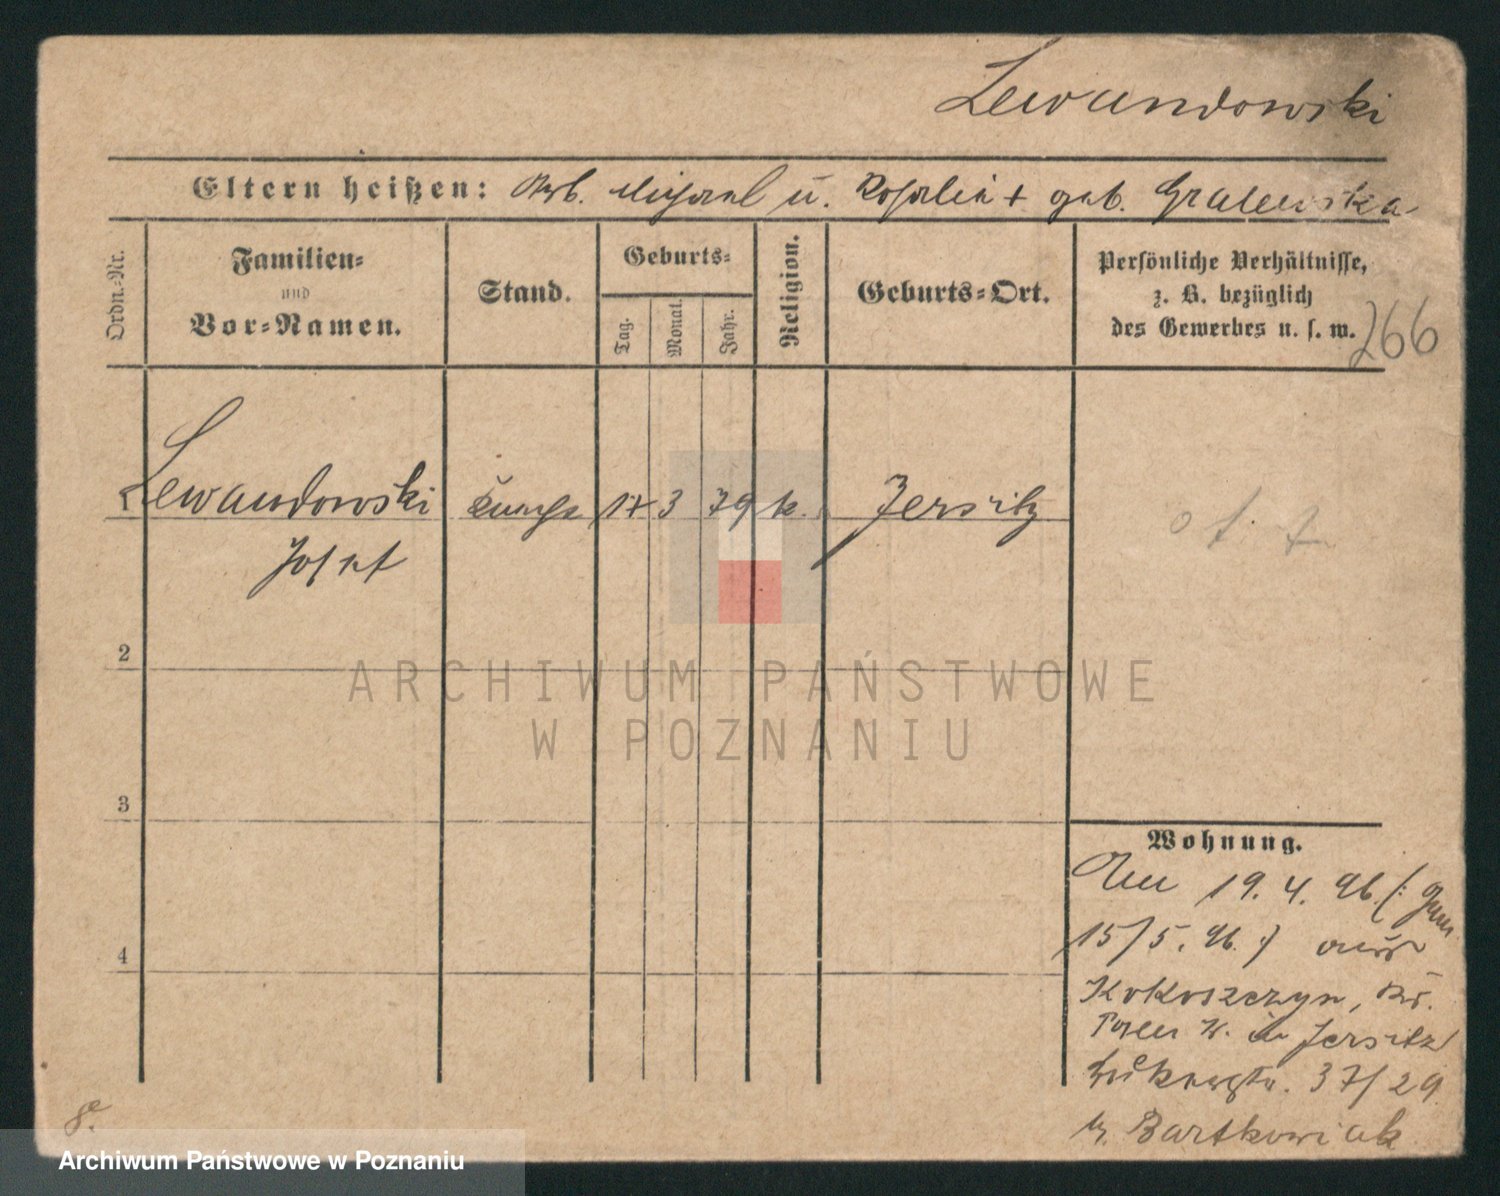 Lewandowski
Eltern heißen: Arb. Michael u. Rosalie + geb. Gralewska
Ordn.-Nr.
Familien-
und
Vor-Namen.
Stand.
Geburts-
Tag.
Monat.
Jahr.
Religion.
Geburts-Ort.
Persönliche Verhältnisse,
z. B. bezüglich
des Gewerbes u. s. w.
266
1 Lewandowski 17 3 79 k. Jersitz
Josef
2
3
4
Wohnung.
19. 4. 96. (:
15/5. 96. :) aus
Kokoszczyn, Kr.
Posen W. in Jersitz
37/29
b. Bartkowiak
ARCHIWUM PAŃSTWOWE
W POZNANIU
Archiwum Państwowe w Poznaniu